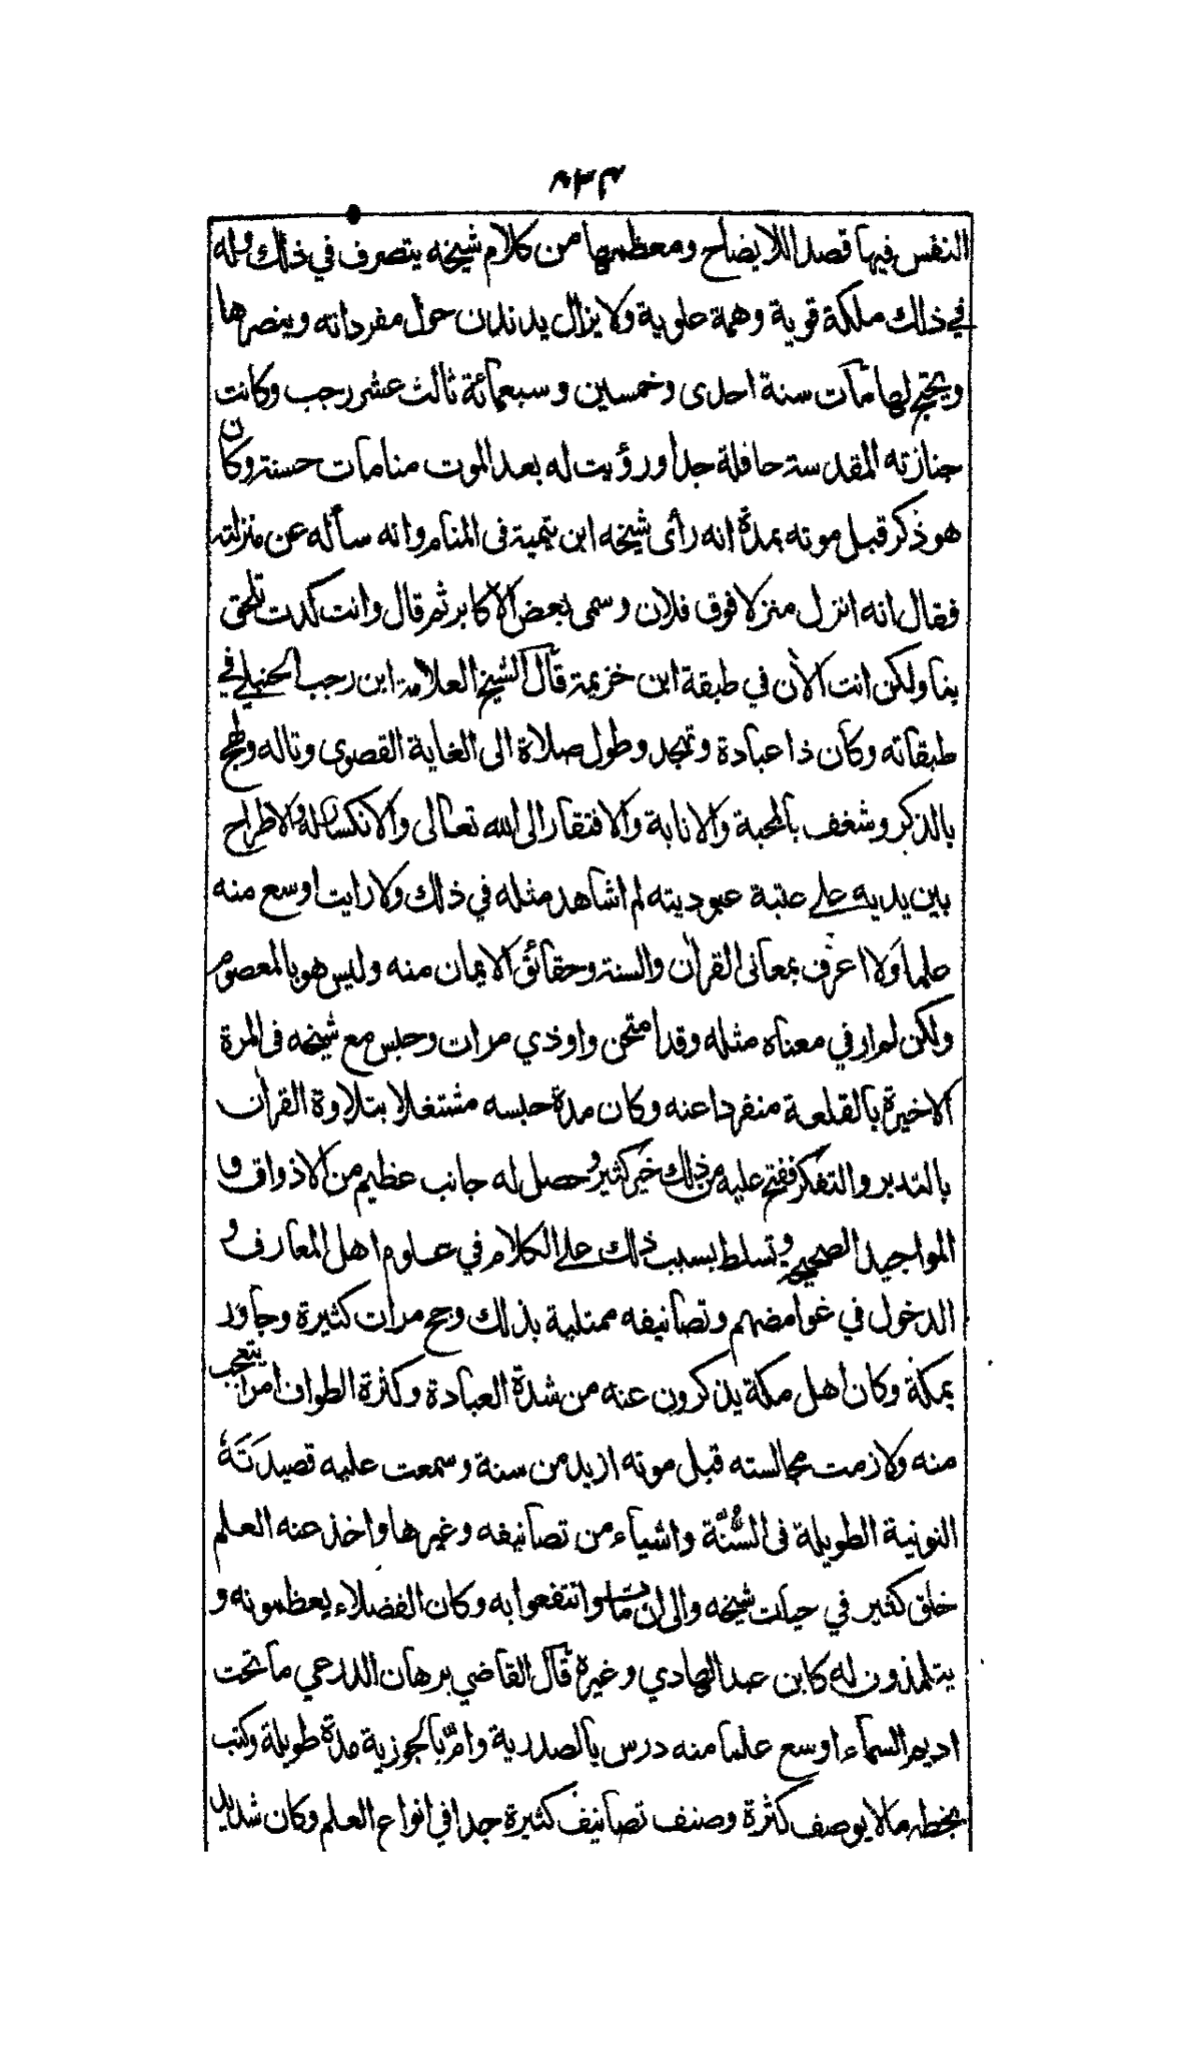 النفس فيها قصد اللايضاح ومعظمها من كلام شيخه يتصرف في ذلك وله
في ذلك ملكة قوية وهمة علوية ولا يزال يدندن حول مفرداته وينصرها
ويحتج لها مات سنة احدى وخمسين وسبعمائة ثالث عشر رجب وكانت
جنازته المقدسة حافلة جدا ورؤيت له بعد الموت منامات حسنة وكان
هو ذكر قبل موته بمدة انه رأى شيخه ابن تيمية فى المنام وانه سأله عن منزلته
فقال انه انزل منزلا فوق فلان وسمى بعض الاكابر ثم قال وانت كدت تلحق
بنا ولكن انت الآن في طبقة ابن خزيمة قال الشيخ العلامة ابن رجب الحنبلي في
طبقاته وكان ذا عبادة وتهجد وطول صلاة الى الغاية القصوى وتاله ولهج
بالذكر وشغف بالمحبة والانابة والافتقار الى الله تعالى والانكسار له والاطراح
بين يديه على عتبة عبوديته لم اشاهد مثله في ذلك ولا رايت اوسع منه
علما ولا اعرف بمعانى القرأن والسنة وحقائق الايمان منه وليس هو بالمعصوم
ولكن لم ار في معناه مثله وقد امتحن واوذي مرات وحبس مع شيخه فى المرة
الاخيرة بالقلعة منفردا عنه وكان مدة حبسه مشتغلا بتلاوة القرأن
بالتدبر والتفكر ففتح عليه من ذلك خير كثير وحصل له جانب عظيم من الاذواق و
المواجيد الصحيحة وتسلط بسبب ذلك على الكلام في علوم اهل المعارف و
الدخول في غوامضهم وتصانيفه ممتلية بذلك وحج مرات كثيرة وجاور
بمكة وكان اهل مكة يذكرون عنه من شدة العبادة وكثرة الطواف امرا يتعجب
منه ولازمت مجالسته قبل موته ازيد من سنة وسمعت عليه قصيدَتَهٗ
النونية الطويلة فى السُّنَّة واشياء من تصانيفه وغيرها واخذ عنه العلم
خلق كثير في حيات شيخه والى ان ماتوا انتفعوا به وكان الفضلاء يعظمونه و
يتلمذون له كابن عبد الهادي وغيره قال القاضي برهان الدرعي ما تحت
اديم السماء اوسع علما منه درس بالصدرية وامّ بالجوزية مدة طويلة وكتب
بخطه مالا يوصف كثرة وصنف تصانيف كثيرة جدا في انواع العلم وكان شديد